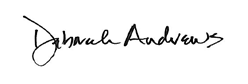 Deborah Andrews